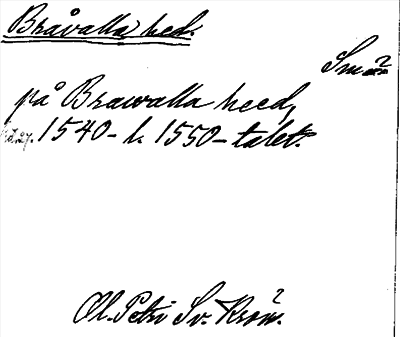 Bråvalla hed.
Små
på Brawalla heed,
1540- l. 1550-talet.
Ol. Petri Sv. Krön.